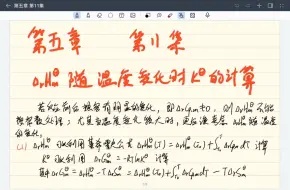 第五章 第11集
第五章 第11集
ΔrHm⊖ 随温度变化时 K⊖ 的计算
若反应前后 热容有明显的变化，即 ΔrCp,m≠0，则 ΔrHm⊖ 不能
按常数处理；尤其当温度变化较大时，更应该考虑 ΔrHm⊖ 随温度
的变化。
(1) ΔrHm⊖(T) = ΔrHm⊖(T₀) + ∫ ΔrCp,m dT 计算
K⊖ 利用 ΔrGm⊖ = -RTlnK⊖ 计算
ΔrGm⊖ = ΔrHm⊖ - TΔrSm⊖ = ΔrHm⊖(T₀) + ∫ ΔrCp,m dT - TΔrSm⊖